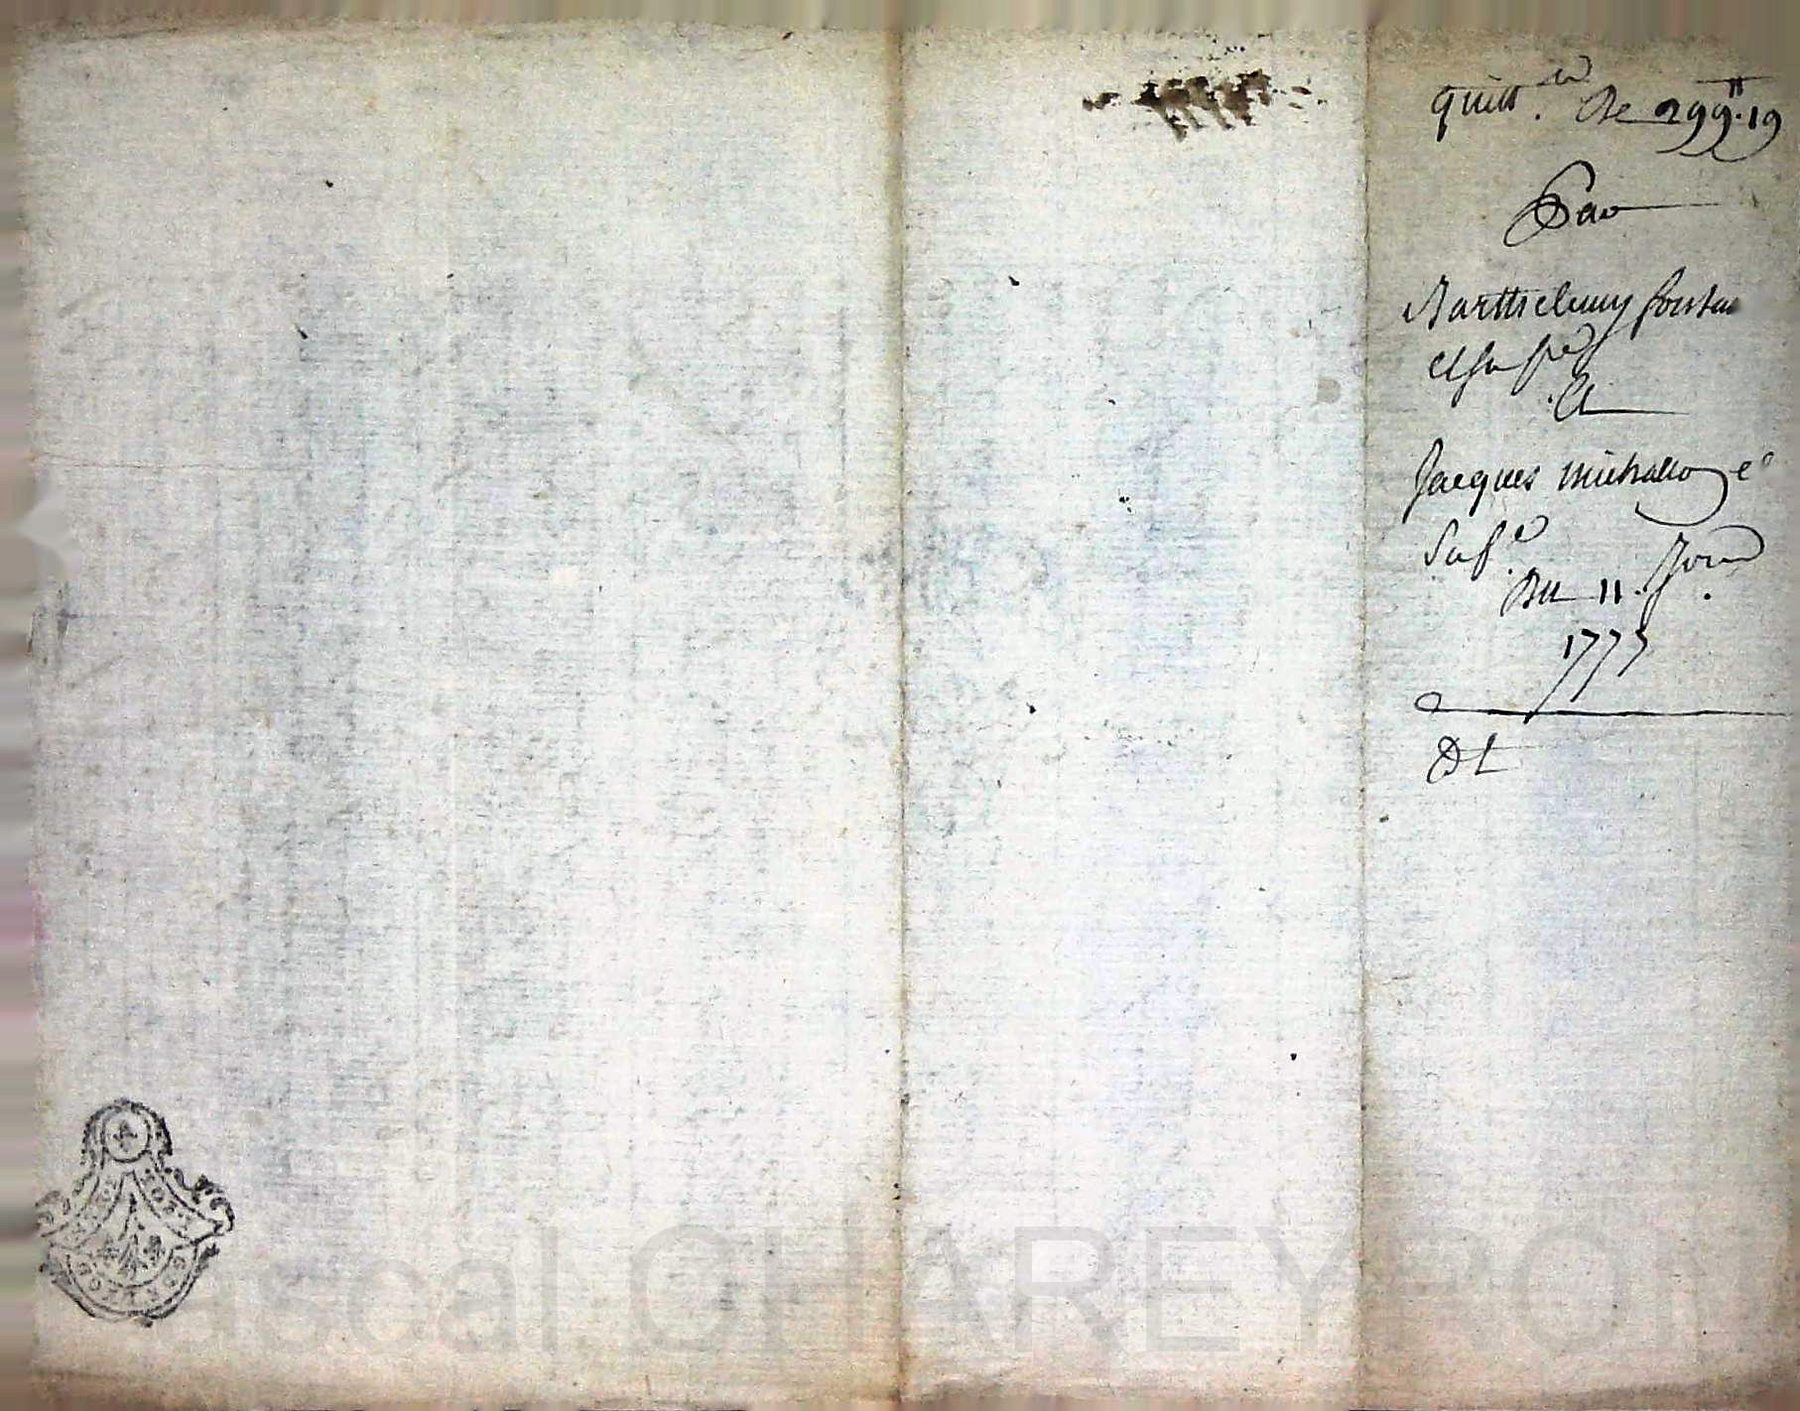 quitt.ce De 299 ₶.19
Par
Barthelemy
et sa fe
A
Jacques michallo e
Sa fe
Du 11. Jer.
1773
DL
Pascal CHAREYRON